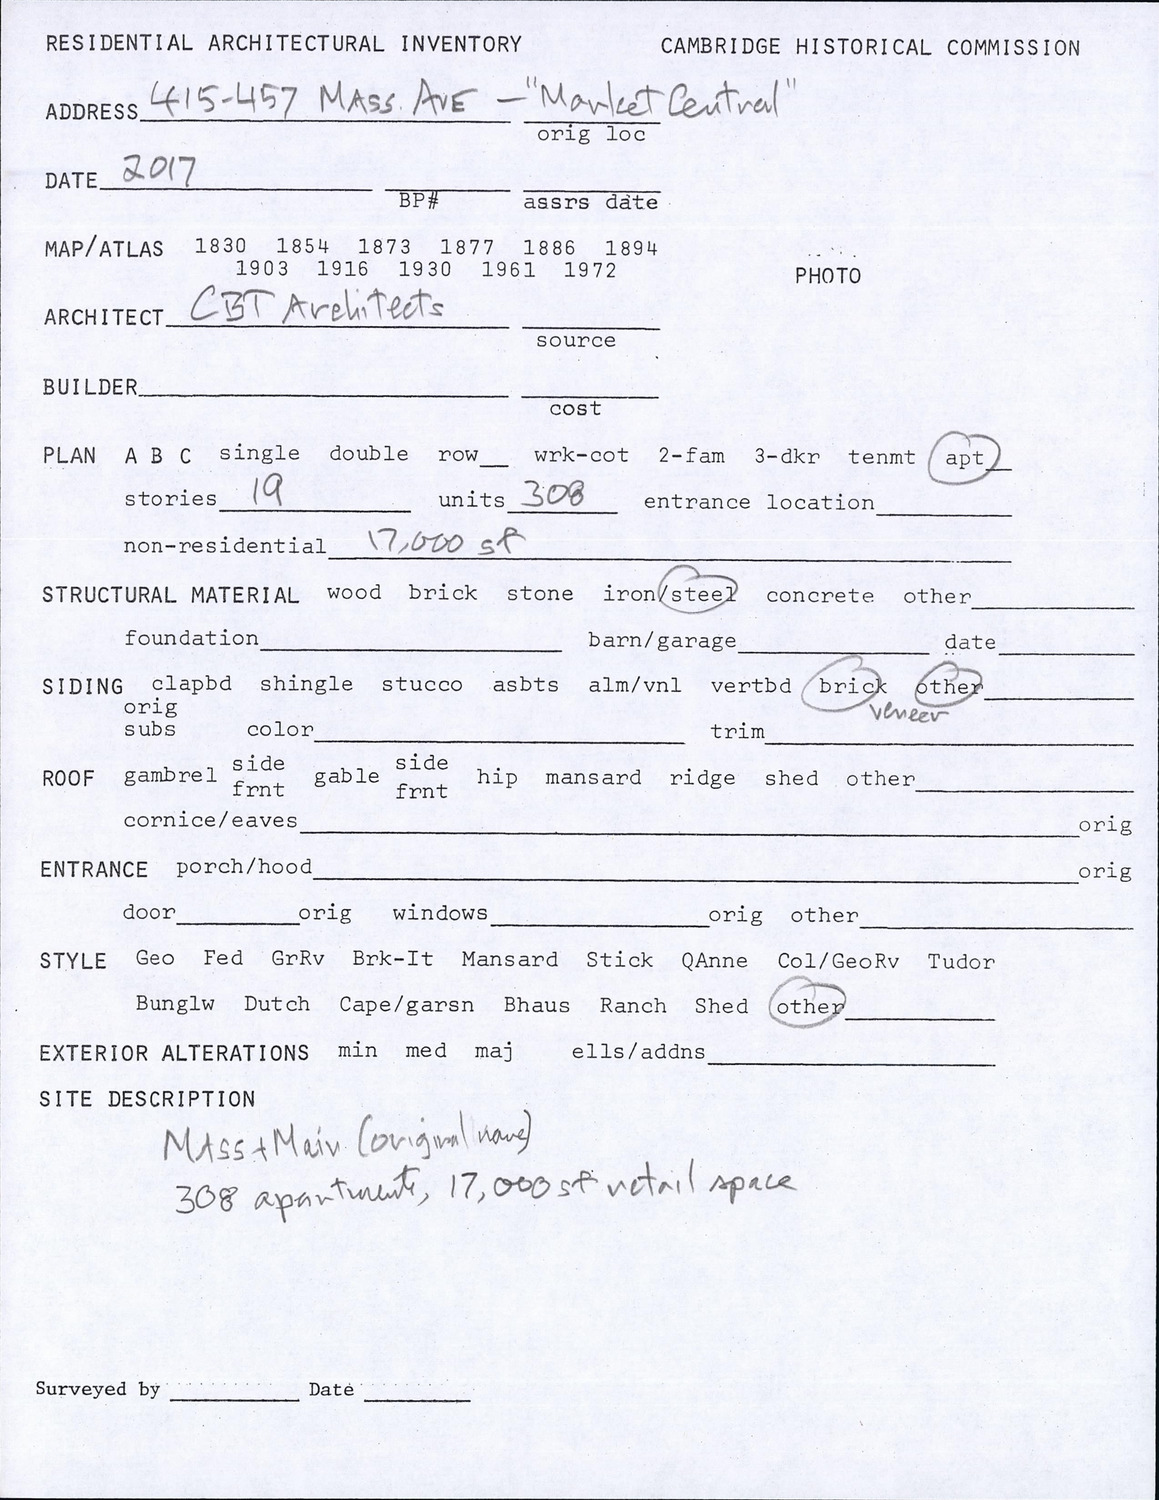 RESIDENTIAL ARCHITECTURAL INVENTORY CAMBRIDGE HISTORICAL COMMISSION
ADDRESS 415-457 MASS. AVE - "Market Central"
orig loc
DATE 2017
BP# assrs date
MAP/ATLAS 1830 1854 1873 1877 1886 1894
1903 1916 1930 1961 1972
PHOTO
ARCHITECT CBT Architects
source
BUILDER
cost
PLAN A B C single double row wrk-cot 2-fam 3-dkr tenmt apt
stories 19 units 308 entrance location
non-residential 17,000 sf
STRUCTURAL MATERIAL wood brick stone iron/steel concrete other
foundation barn/garage date
SIDING clapbd shingle stucco asbts alm/vnl vertbd brick other
orig veneer
subs color trim
ROOF gambrel side frnt gable side frnt hip mansard ridge shed other
cornice/eaves orig
ENTRANCE porch/hood orig
door orig windows orig other
STYLE Geo Fed GrRv Brk-It Mansard Stick QAnne Col/GeoRv Tudor
Bunglw Dutch Cape/garsn Bhaus Ranch Shed other
EXTERIOR ALTERATIONS min med maj ells/addns
SITE DESCRIPTION
MASS + Main (original name)
308 apartments, 17,000 sf retail space
Surveyed by Date